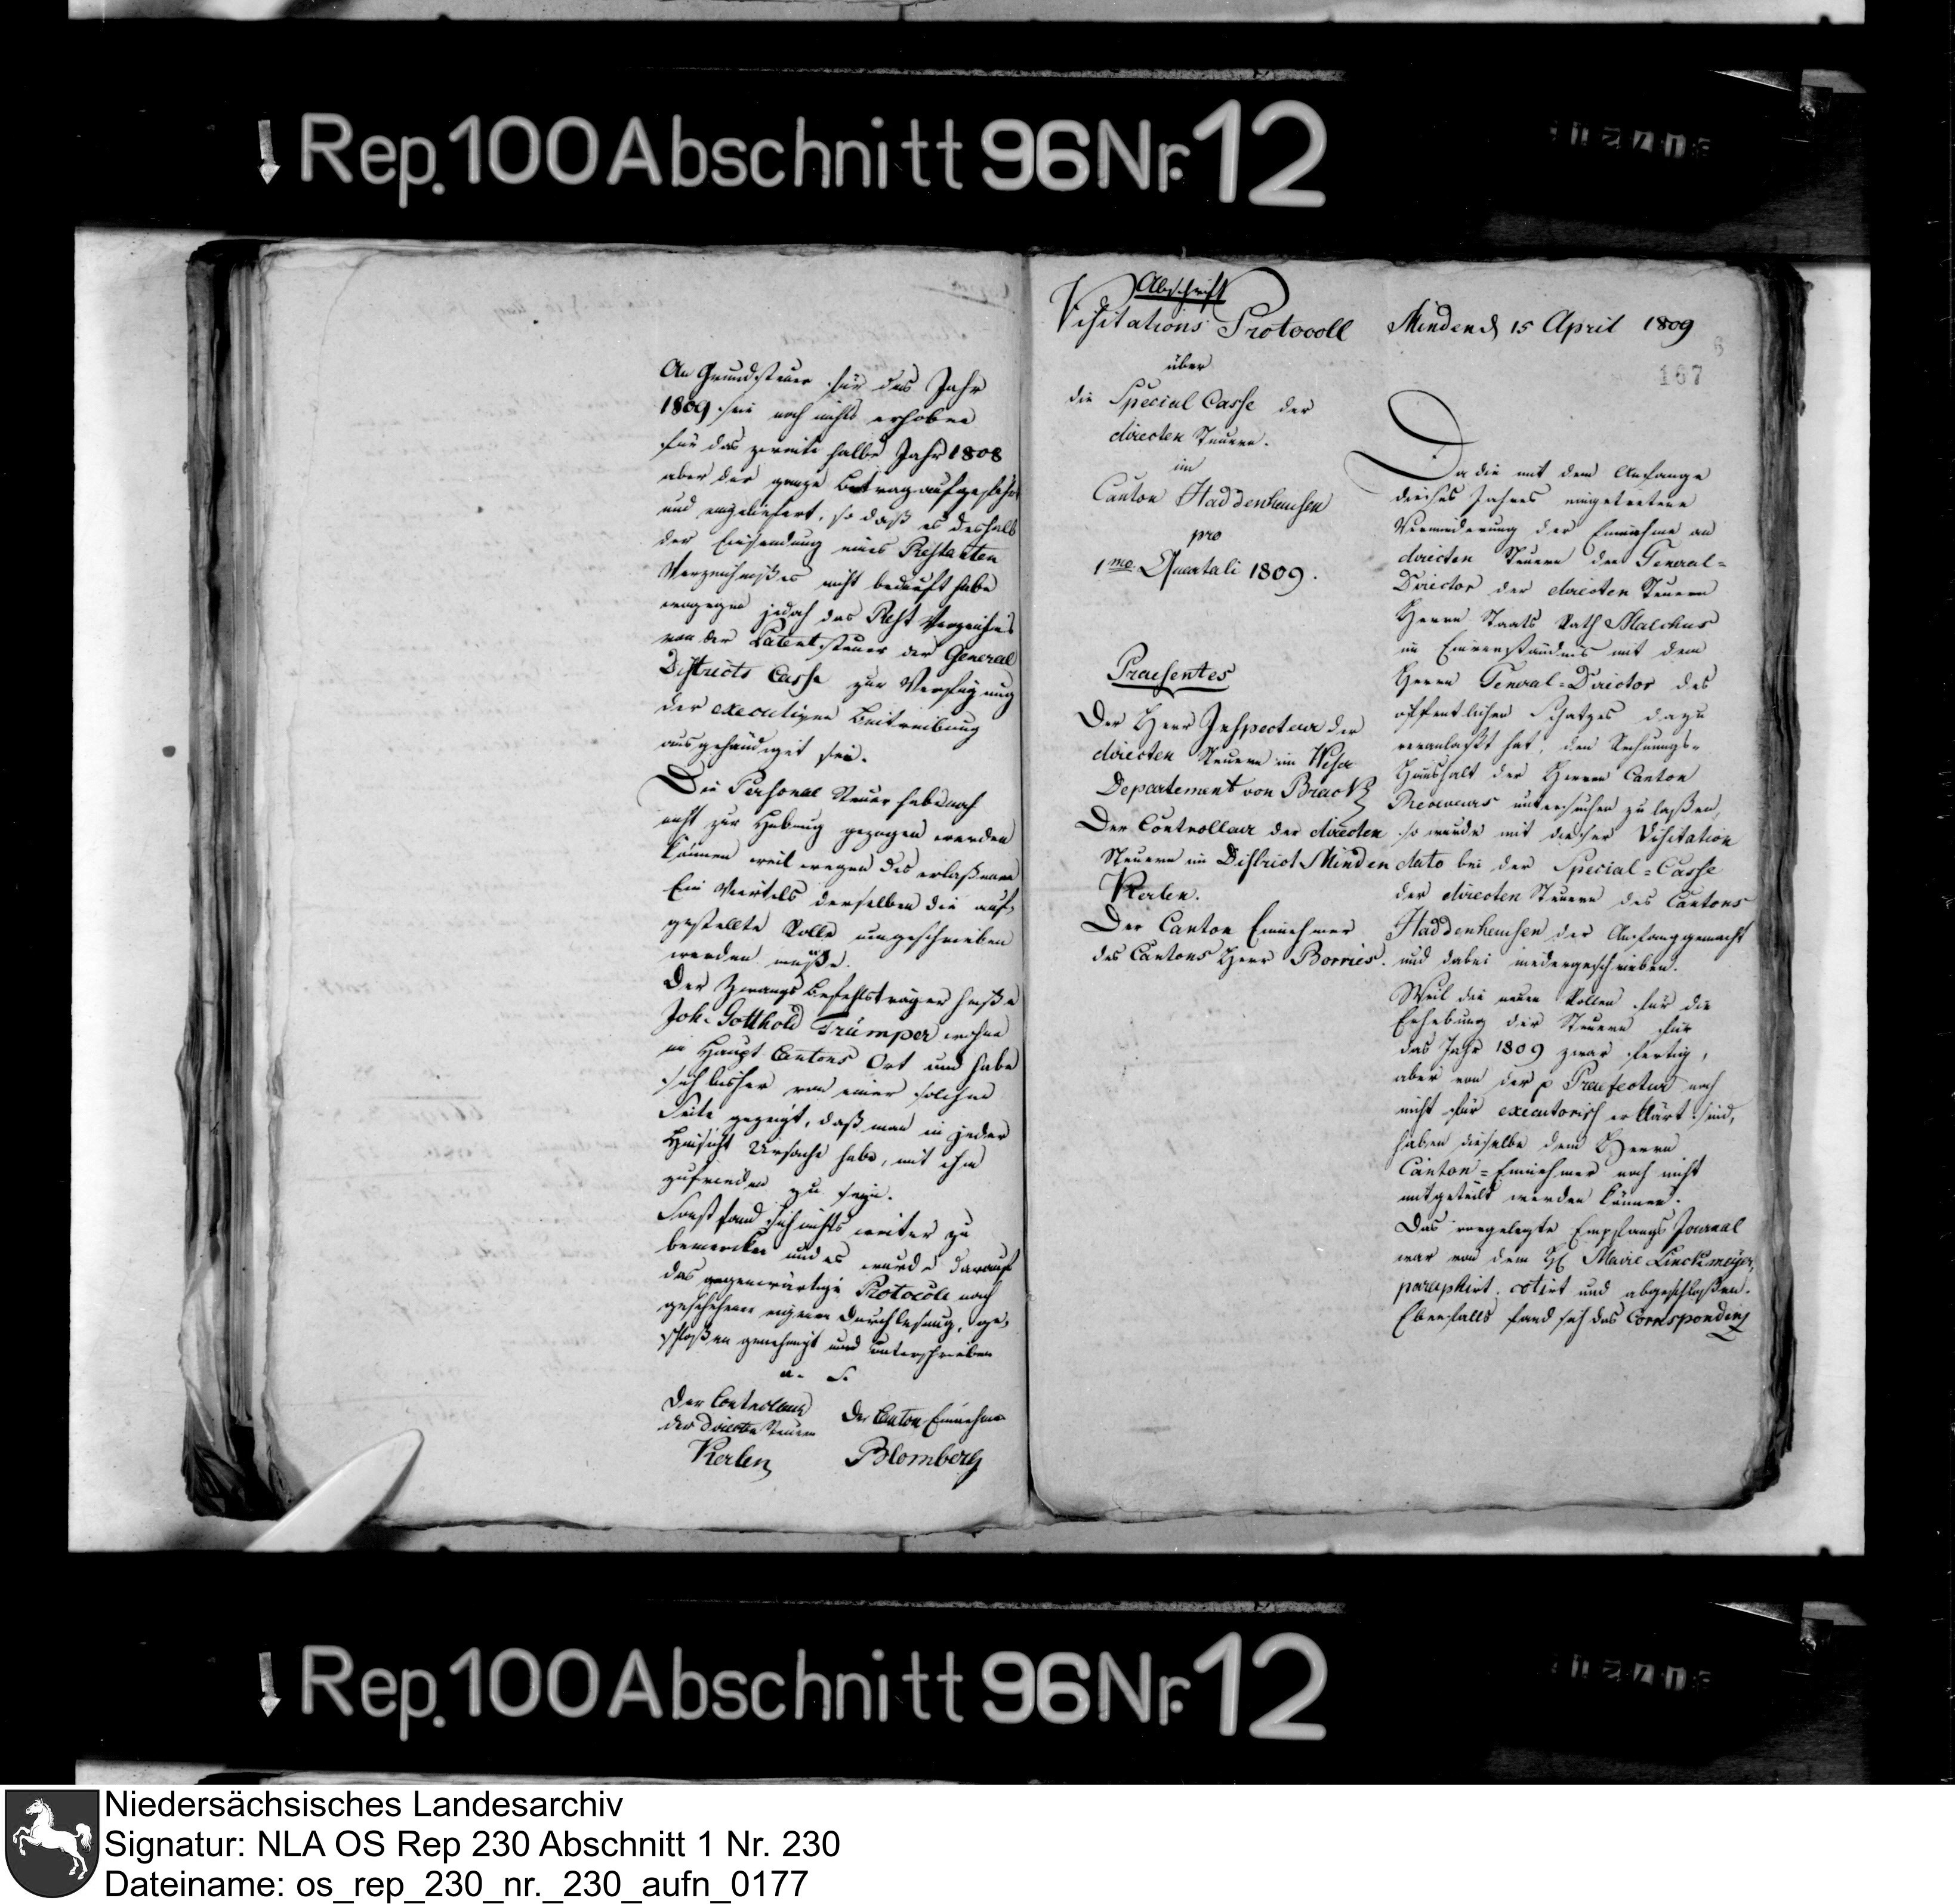 Rep. 100 Abschnitt 96 Nr. 12
An Grundsteuer für das Jahr
1809 sei noch nichts erhoben
für das zweite halbe Jahr 1808
aber der ganze Betrag aufgehoben
und eingeliefert, so daß es deshalb
der Einsendung eines Restanten
Verzeichnißes nicht bedurft habe
wogegen jedoch das Rest Verzeichnis
von der Patentsteuer der General
Districts Casse zur Verfügung
der executiven Beitreibung
ausgehändigt sei.
Die Personal Steuer habe noch
nicht zur Hebung gezogen werden
können weil wegen des erlaßenen
Ein Viertels derselben die auf-
gestellte Rolle umgeschrieben
werden müße.
Der Zwangsbefehlsträger heiße
Joh. Gotthold Trümper wohne
im Haupt Cantons Ort und habe
sich bisher von einer solchen
Seite gezeigt, daß man in jeder
Hinsicht Ursache habe, mit ihm
zufrieden zu sein.
Sonst fand sich nichts weiter zu
bemercken und es wurde darauf
das gegenwärtige Protocoll nach
geschehener eigener Durchlesung, ge-
schloßen genehmigt und unterschrieben
a. S.
Der Controlleur
der directen Steuern
Kerlen
Der Canton Einnehmer
Blomberg
Abschrift
Visitations Protocoll
über
die Special Casse der
directen Steuern.
im
Canton Haddenhausen
pro
1mo Quartali 1809.
Praesentes
Der Herr Inspecteur der
directen Steuern im Weser
Departement von Brack
Der Controlleur der directen
Steuern im District Minden
Kerlen.
Der Canton Einnehmer
des Cantons Herr Borries.
Minden d 15 April 1809
167
Da die mit dem Anfange
dieses Jahres eingetretene
Verminderung der Einnahme an
directen Steuern den General-
Director der directen Steuern
Herrn Staats Rath Malchus
im Einverständnis mit dem
Herrn General-Director des
öffentlichen Schatzes dazu
veranlaßt hat, den Rechnungs-
Haushalt der Herren Canton
Receveurs untersuchen zu laßen,
so wurde mit dieser Visitation
dato bei der Special-Casse
der directen Steuern des Cantons
Haddenhausen der Anfang gemacht
und dabei niedergeschrieben.
Weil die neuen Rollen für die
Erhebung der Steuern für
das Jahr 1809 zwar fertig,
aber von der p Praefectur noch
nicht für executorisch erklärt sind,
haben dieselbe dem Herrn
Canton-Einnehmer noch nicht
mitgeteilt werden können.
Das vorgelegte Empfangs Journal
war von dem H. Maire Linckmeyer,
paraphirt. cotirt und abgeschloßen.
Ebenfalls fand sich das Correspondenz
Rep. 100 Abschnitt 96 Nr. 12
Niedersächsisches Landesarchiv
Signatur: NLA OS Rep 230 Abschnitt 1 Nr. 230
Dateiname: os_rep_230_nr._230_aufn_0177